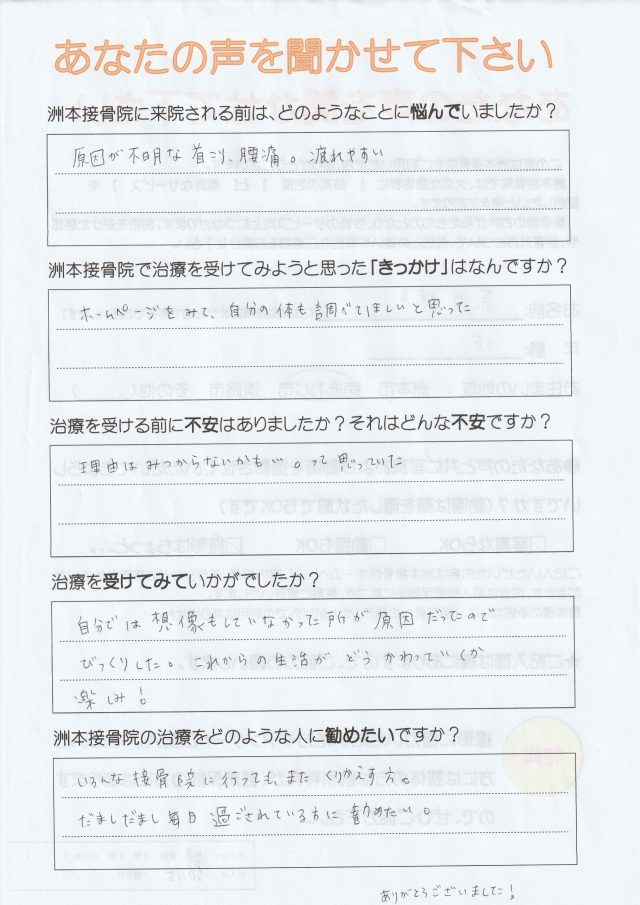 あなたの声を聞かせて下さい
洲本接骨院に来院される前は、どのようなことに悩んでいましたか？
原因が不明な首こり、腰痛。疲れやすい
洲本接骨院で治療を受けてみようと思った「きっかけ」はなんですか？
ホームページをみて、自分の体も調べてほしいと思った
治療を受ける前に不安はありましたか？それはどんな不安ですか？
理由はみつからないかも…。って思っていた
治療を受けてみていかがでしたか？
自分では想像もしていなかった所が原因だったので
びっくりした。これからの生活が、どうかわっていくか
楽しみ！
洲本接骨院の治療をどのような人に勧めたいですか？
いろんな接骨院に行っても、またくりかえす方。
だましだまし毎日過ごされている方に勧めたい。
ありがとうございました！